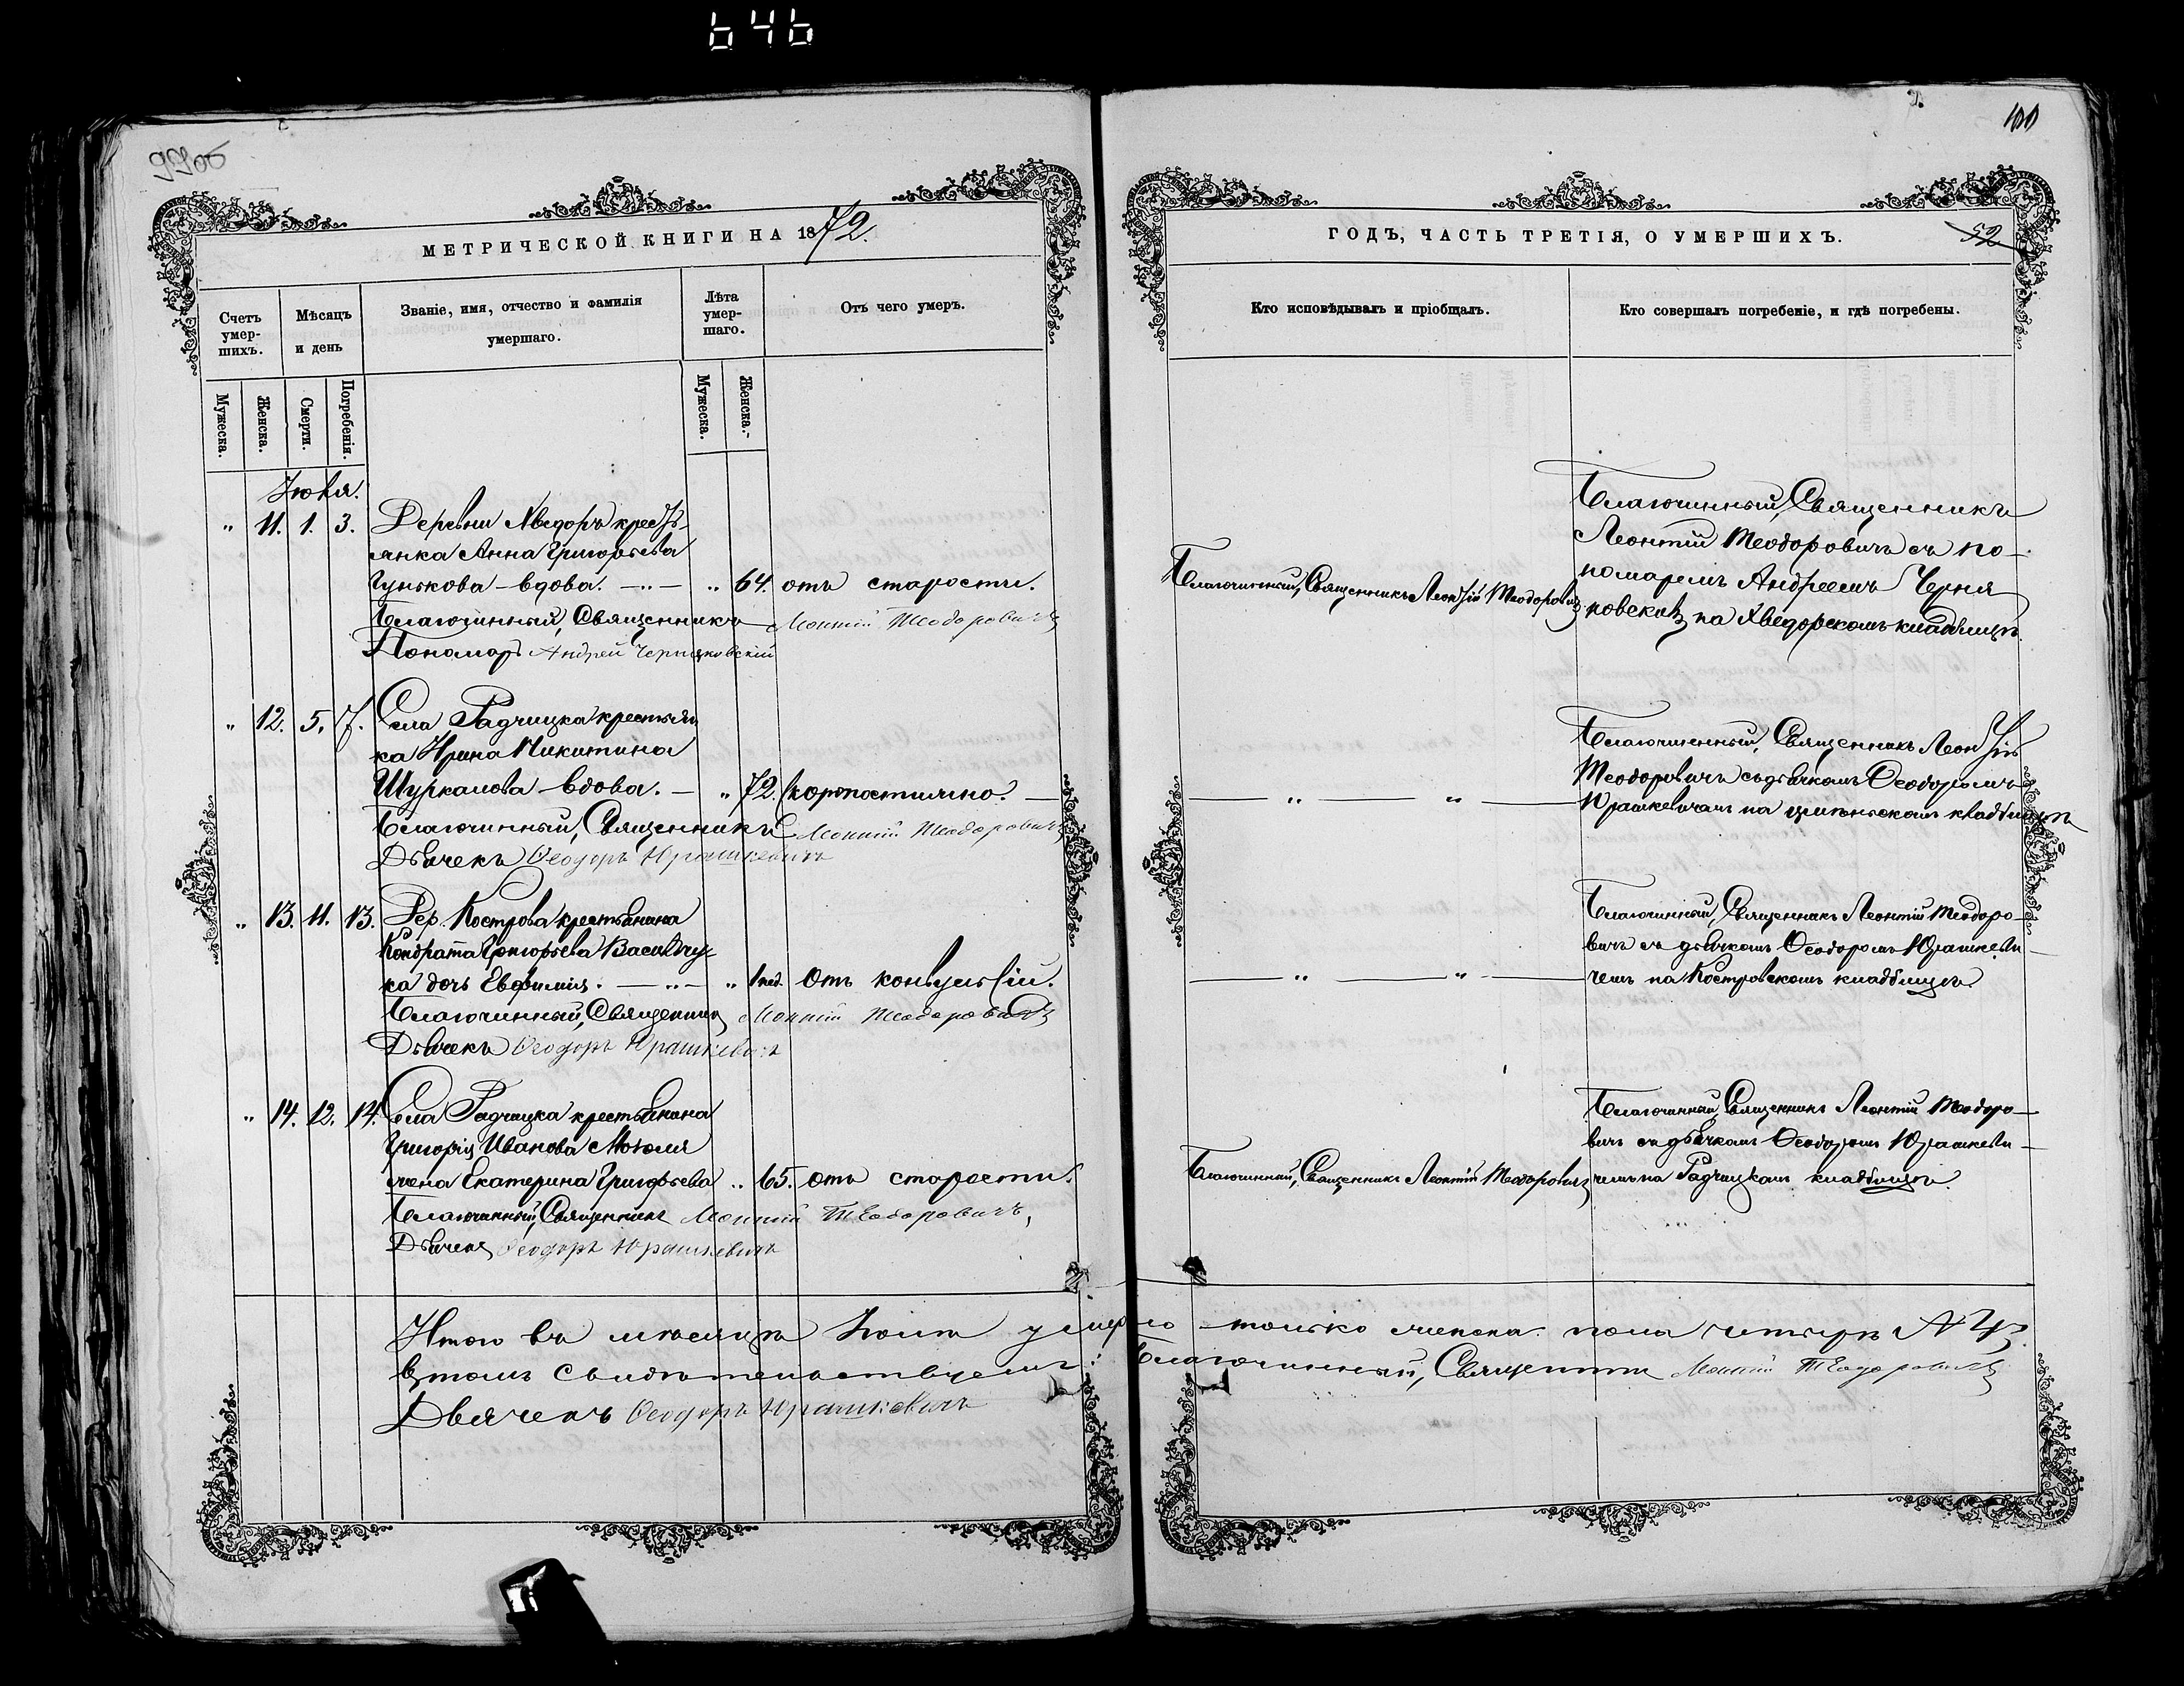 646
100
МЕТРИЧЕСКОЙ КНИГИ НА 1872.
Счетъ умер-шихъ.
Мужеска.
Женска.
Мѣсяцъ и день
Смерти.
Погребенія.
Званіе, имя, отчество и фамилія умершаго.
Лѣта умер-шаго.
Мужеска.
Женска.
Отъ чего умеръ.
" 11. 1. 3. Деревни Хведоръ кресть-
янка Анна Григорьева
вдова. " 64. отъ старости.
Благочинный, Священникъ Леонтій Теодоровичъ
Пономарь Андрей Черняковскій
" 12. 5. 7. Села Радчицка крестьян-
ка Ирина Никитина
Шуркалова вдова. " 72. скоропостижно.
Благочинный, Священникъ Леонтій Теодоровичъ
Дьячекъ Ѳеодоръ Юрашкевичъ
" 13. 11. 13. Дер. Кострова крестьянина
Кондрата Григорьева Васильчу-
ка дочь Евфимія. " 1 нед. отъ конвульсій.
Благочинный, Священникъ Леонтій Теодоровичъ
Дьячекъ Ѳеодоръ Юрашкевичъ
" 14. 12. 14. Села Радчицка крестьянина
Григорія Иванова
жена Екатерина Григорьева " 65. отъ старости.
Благочинный, Священникъ Леонтій Теодоровичъ,
Дьячекъ Ѳеодоръ Юрашкевичъ
ГОДЪ, ЧАСТЬ ТРЕТІЯ, О УМЕРШИХЪ. 52
Кто исповѣдывалъ и пріобщалъ.
Кто совершалъ погребеніе, и гдѣ погребены.
Благочинный, Священникъ Леонтій Теодоровичъ
Благочинный, Священникъ
Леонтій Теодоровичъ съ по-
номаремъ Андреемъ Черня
ковскимъ на Хведорскомъ кладбищѣ.
" "
Благочинный, Священникъ Леонтій
Теодоровичъ съ дьячкомъ Ѳеодоромъ
Юрашкевичемъ на кладбищѣ
" "
Благочинный, Священникъ Леонтій Теодоро-
вичъ съ дьячкомъ Ѳеодоромъ Юрашкеви-
чемъ на Костровскомъ кладбищѣ.
Благочинный, Священникъ Леонтій Теодоровичъ
Благочинный, Священникъ Леонтій Теодоро-
вичъ съ дьячкомъ Ѳеодоромъ Юрашкеви-
чемъ на Радчицкомъ кладбищѣ.
Итого въ мѣсяцѣ умерло только женска пола четыре № 4.
въ томъ свидѣтельствуемъ: Благочинный, Священникъ Леонтій Теодоровичъ
Дьячекъ Ѳеодоръ Юрашкевичъ